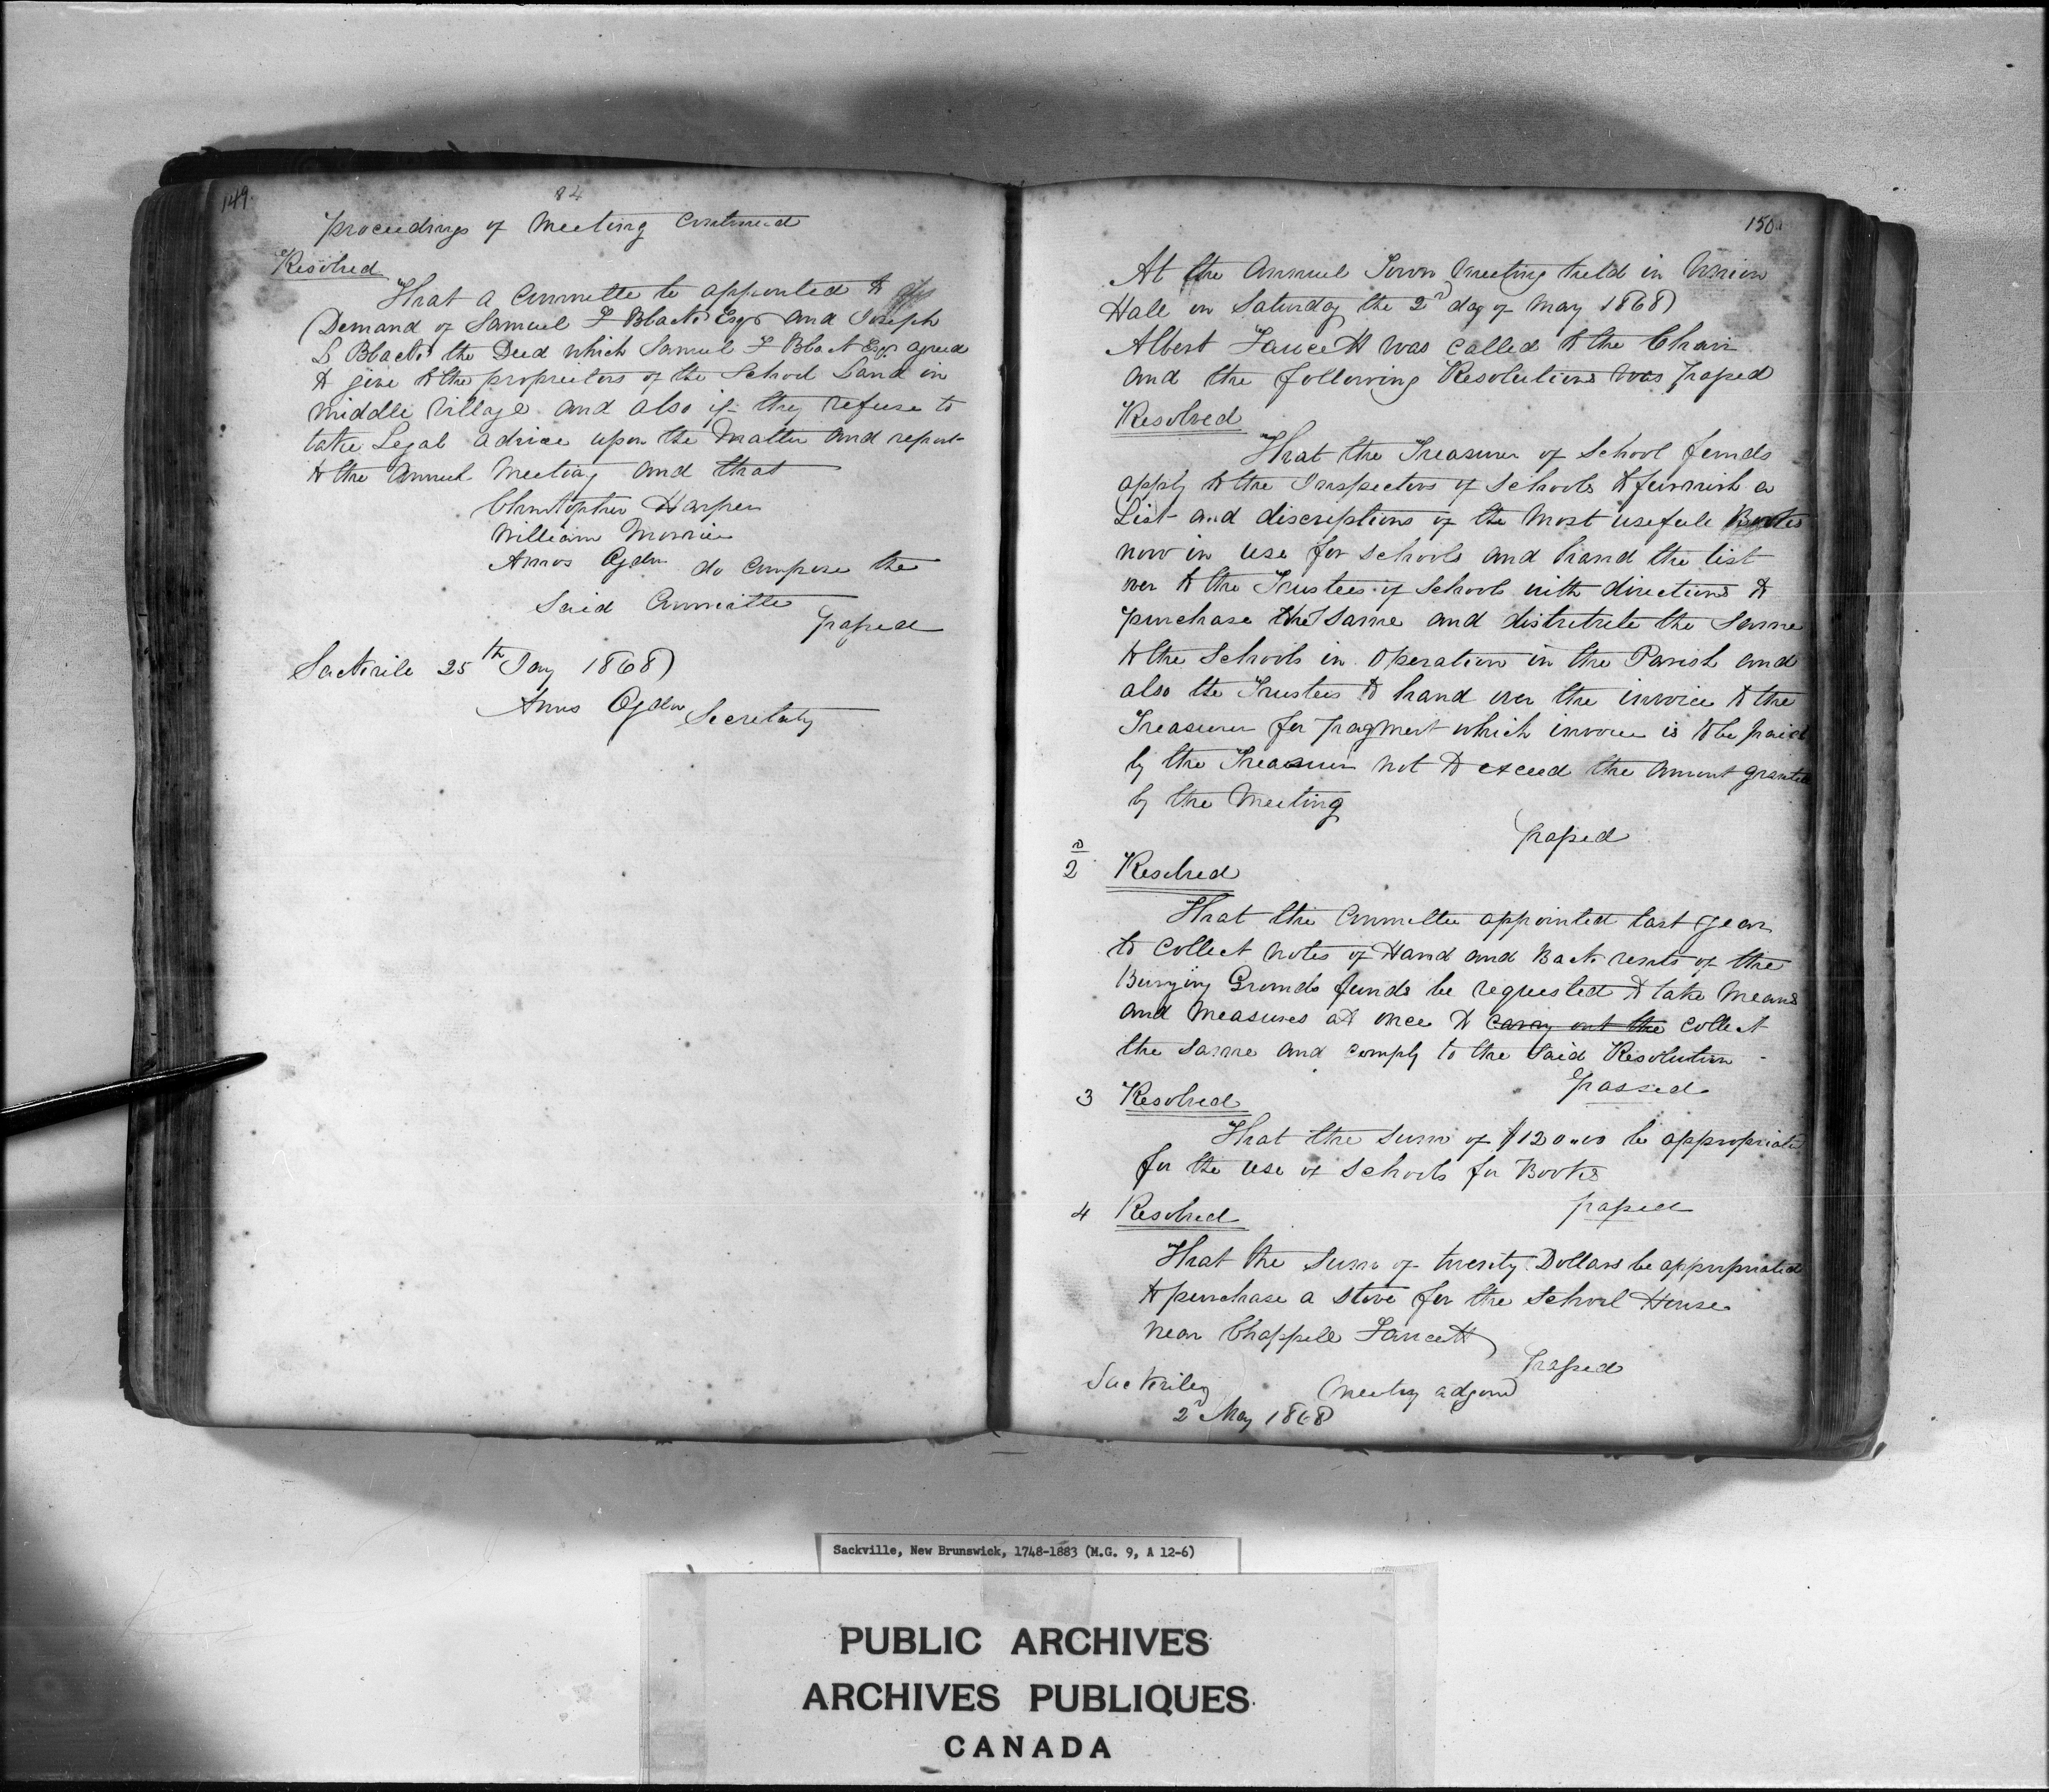 149.
84
Proceedings of Meeting Continued
Resolved
That a Committe be appointed to
Demand of Samuel F Black Esqr and Joseph
L Black the Deed which Samuel F Black Esqr agreed
to give to the proprietors of the School Land in
Middle Village and also if they refuse to
take Legal advice upon the Matter and report
to the Annual Meeting and that
Christopher Harper
William Morrice
Amos Ogden do Compose the
Said Committe
Passed
Sackvile 25th Jany 1868
Amos Ogden Secretary
150.
At the Annual Town Meeting held in Union
Hall on Saturday the 2d day of May 1868
Albert Fawcett was Called to the Chair
and the following Resolutions was Passed
Resolved
That the Treasurer of School funds
apply to the Inspectors of Schools to furnish a
List and discreptions of the Most usefull Books
now in use for Schools and hand the list
over to the Trustees of Schools with directions to
purchase the Same and distribute the Same
to the Schools in Operation in the Parish and
also the Trustees to hand over the invoice to the
Treasurer for payment which invoice is to be paid
by the Treasurer not to exceed the Amount granted
by the Meeting
Passed
2d Resolved
That the Committee appointed last year
to Collect Notes of Hand and Back rents of the
Burying Grounds funds be requested to take Means
and Measures at once to carry out the Collect
the Same and comply to the Said Resolution
Passed
3 Resolved
That the Sum of $120.00 be appropriated
for the use of Schools for Books
Passed
4 Resolved
That the Sum of twenty Dollars be appropriated
to purchase a Stove for the School House
near Chappell Fawcett
Passed
Sackvile
Meeting adjornd
2d May 1868
Sackville, New Brunswick, 1748-1883 (M.G. 9, A 12-6)
PUBLIC ARCHIVES
ARCHIVES PUBLIQUES
CANADA